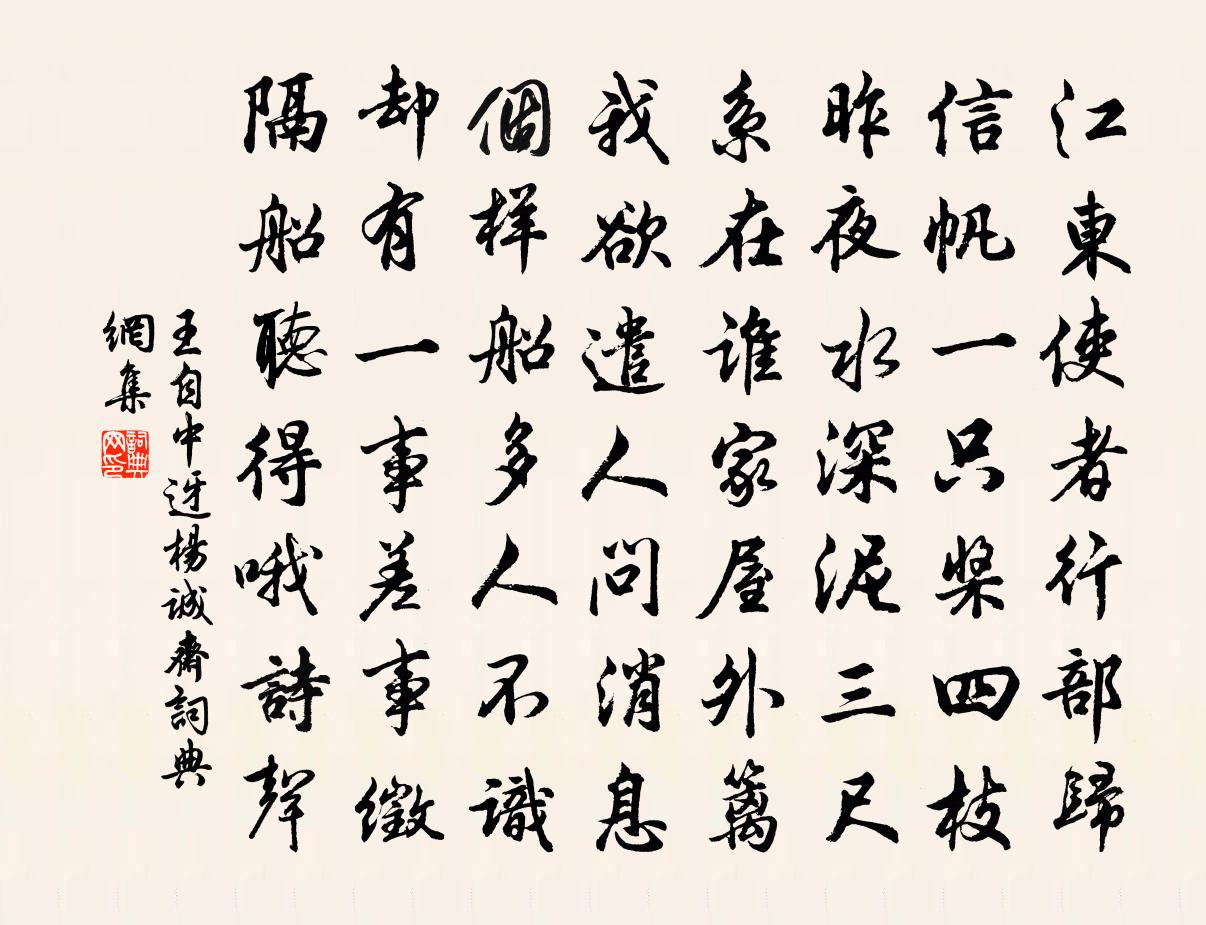 江東使者行部歸
信帆一只槳四枝
昨夜水深泥三尺
系在誰家屋外籬
我欲遣人問消息
個樣船多人不識
却有一事差事徵
隔船聽得哦詩聲
王自中迓楊誠齋詞典
網集
詞典
网印